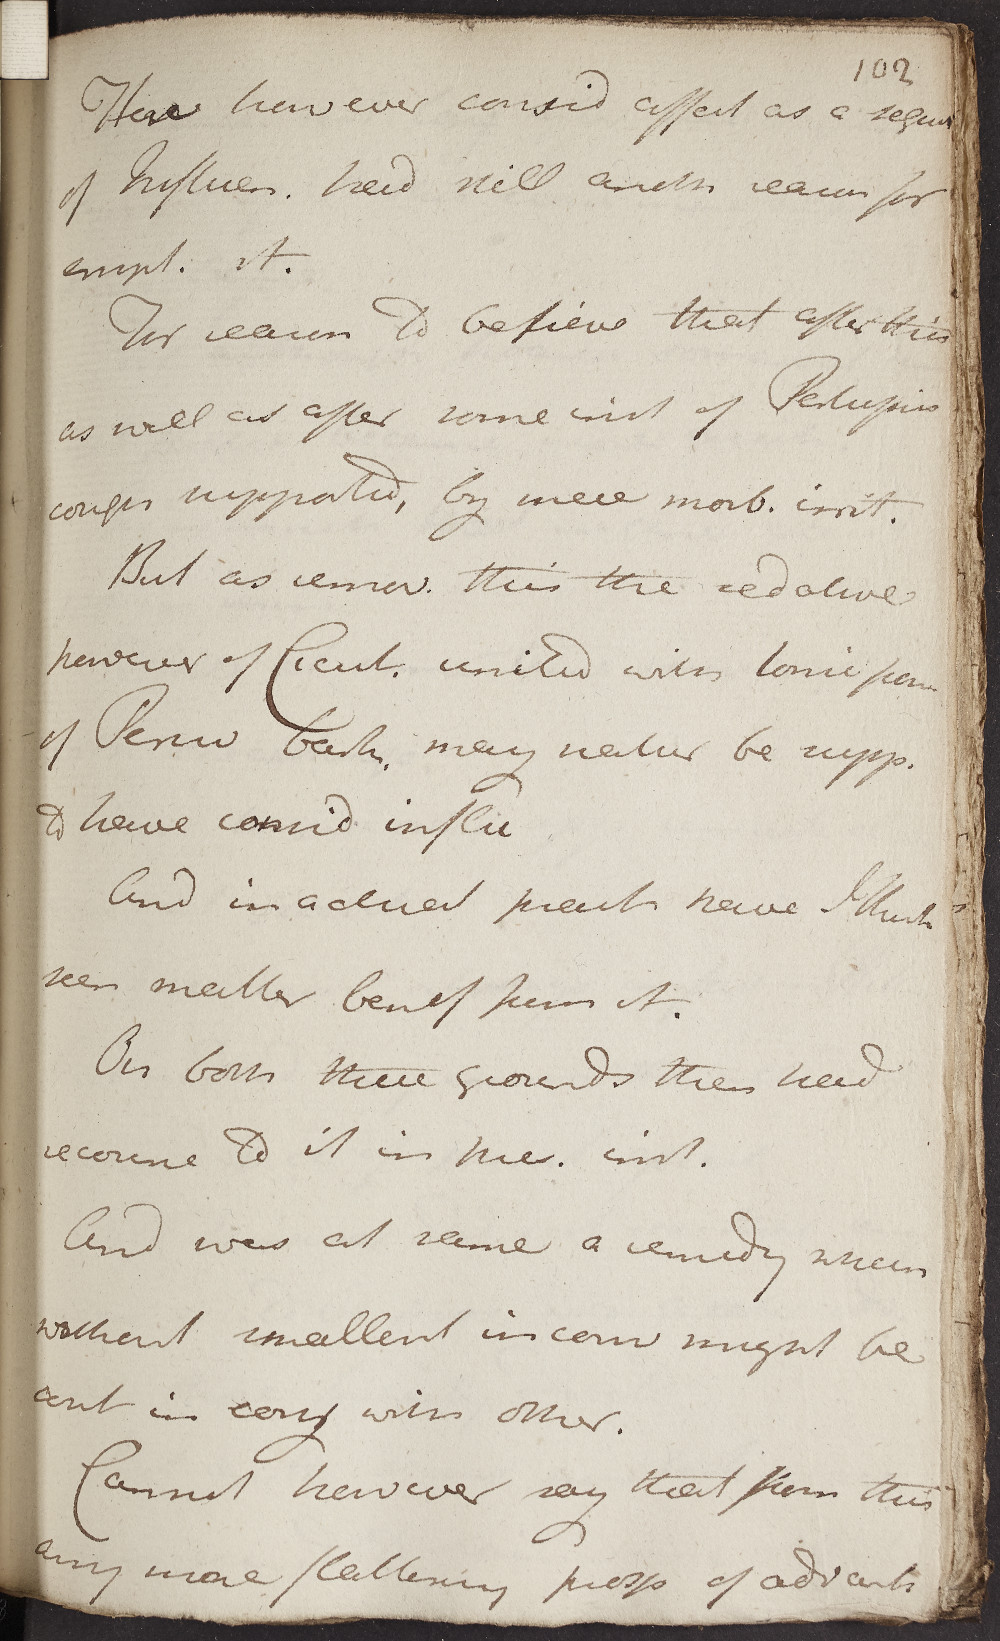 102
Here however consid affect as a seque
of Influen. had still anoth reason for
empl. it.
For reason to believe that after this
as well as after some inst of Pertussis
cough supported, by mere morb. irrit.
But as remov. this the sedative
power of Cicut. united with tonic pow
of Peruv bark. may natur be supp.
to have consid influ
And in actual pract have I
seen matter benef from it.
On both these grounds then had
recourse to it in pre. inst.
And was at same a remedy when
without smallest incon might be
cont in conj with other.
Cannot however say that from this
any more flattering prosp of advant